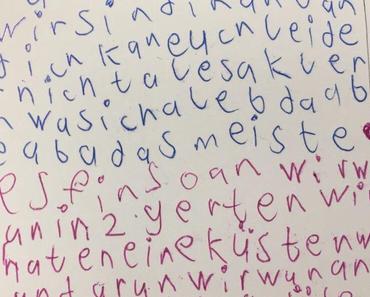 wirsindinanvan
ichkaneuchleide
nichtalesakler
wasichalebdaab
eabadasmeiste
esfeinsoanwirw
anin2.gertenwi
hateneineküstenw
untarunwirwunan